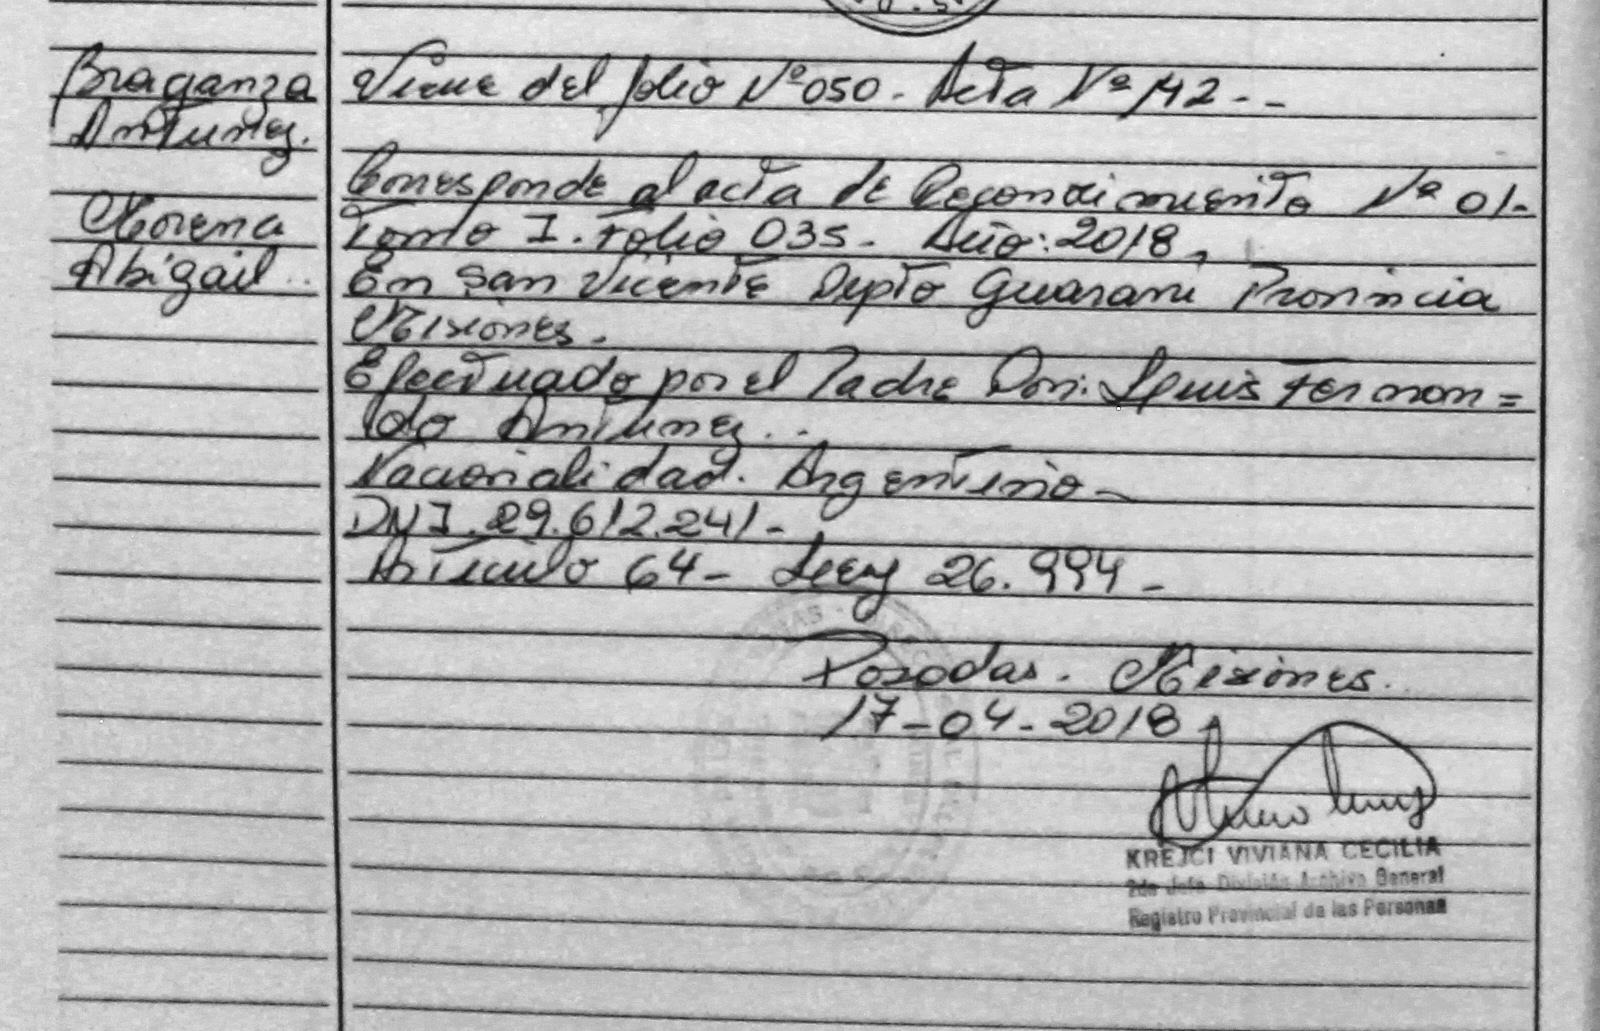 Braganza
Antunez.
Morena
Abigail..
Viene del folio Nº 050. Acta Nº 142 - -
Corresponde al acta de Reconocimiento Nº 01-
Tomo I. Folio 035- Año: 2018,
En San Vicente Depto Guarani Provincia
Misiones.
Efectuado por el Padre Don: Luis Fernan=
do Antunez...
Nacionalidad. Argentino-
DNI. 29.612.241-
Artículo 64- Ley 26.994-
Posadas. Misiones.
17-04-2018
KREJCI VIVIANA CECILIA
2da Jefa División Archivo General
Registro Provincial de las Personas